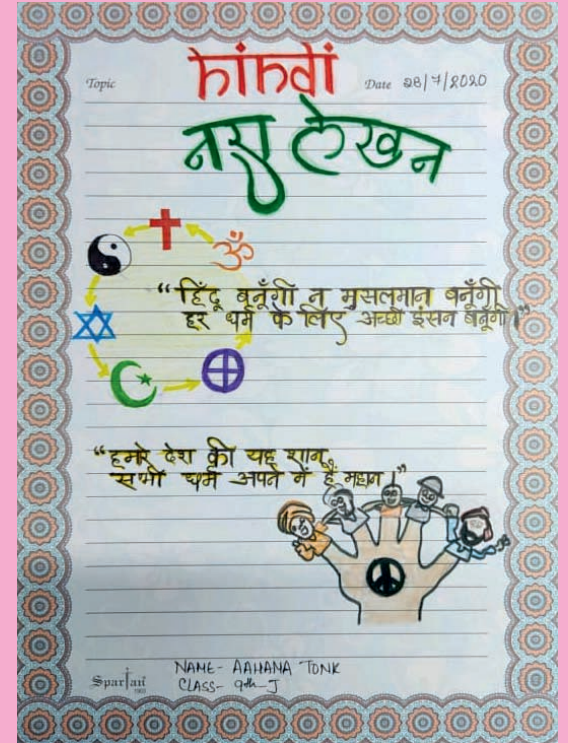 Topic
hindi
Date 28/7/2020
नारा लेखन
“हिंदू बनूँगी न मुसलमान बनूँगी
हर धर्म के लिए अच्छी इंसन बनूँगी।”
“हमारे देश की यह शान,
सभी धर्म अपने में हैं महान।”
NAME- AAHANA TONK
CLASS- 9th-J
Spartan